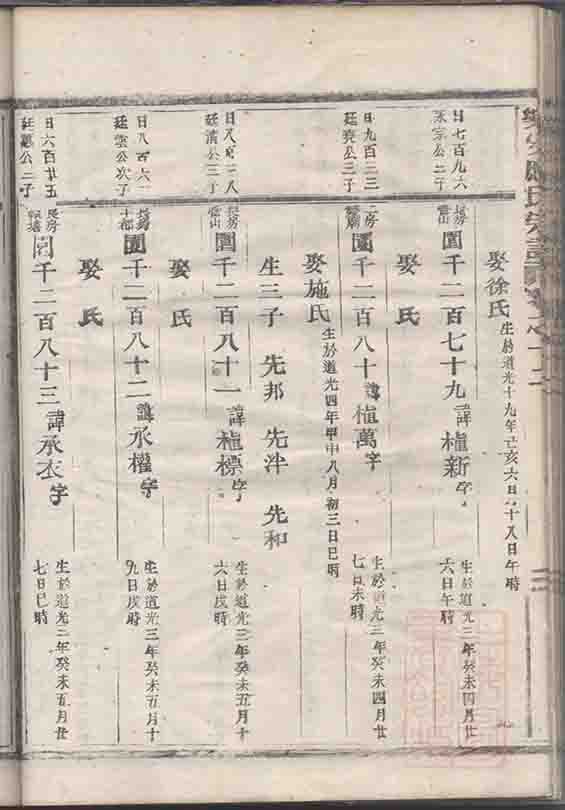 日七百九六
永宗公二子
長房
靈山
圊千二百七十九諱植新字
生於道光三年癸未四月廿
六日午時
娶徐氏生於道光十九年己亥六月十八日午時
日九百三三
廷堯公三子
二房
圊千二百八十諱植萬字
生於道光三年癸未四月廿
七日未時
娶氏
娶施氏生於道光四年甲申八月初三日巳時
生三子 先邦 先泮 先和
廷滿公三子
長房
靈山
圊千二百八十一諱植標字
生於道光三年癸未五月十
六日戌時
娶氏
日八百六二
廷雲公次子
十都
圊千二百八十二諱承權字
生於道光三年癸未五月十
九日戌時
娶氏
日六百廿五
公二子
長房
圊千二百八十三諱承衣字
生於道光三年癸未五月廿
七日巳時